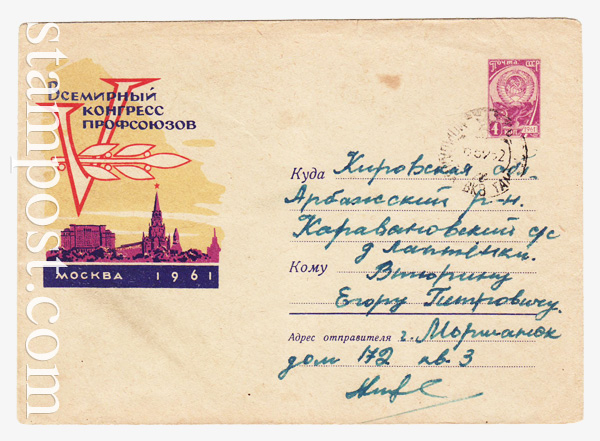 stampost.com
V
Всемирный
конгресс
профсоюзов
Москва 1961
Почта СССР
4
Куда Кировская обл
Арбажский р-н.
Каравановский с/с
д Лаптенки.
Кому
Егору Петровичу.
Адрес отправителя г. Моршанск
дом 172 кв. 3